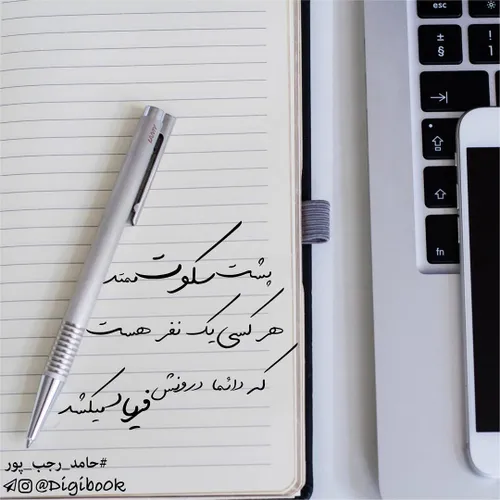 پشت سکوت ممتد
هر کسی یک نفر هست
که دائما درونش فریاد میکشد
#حامد_رجب_پور
@Digibook
LAMY
esc
±
§
!
1
fn